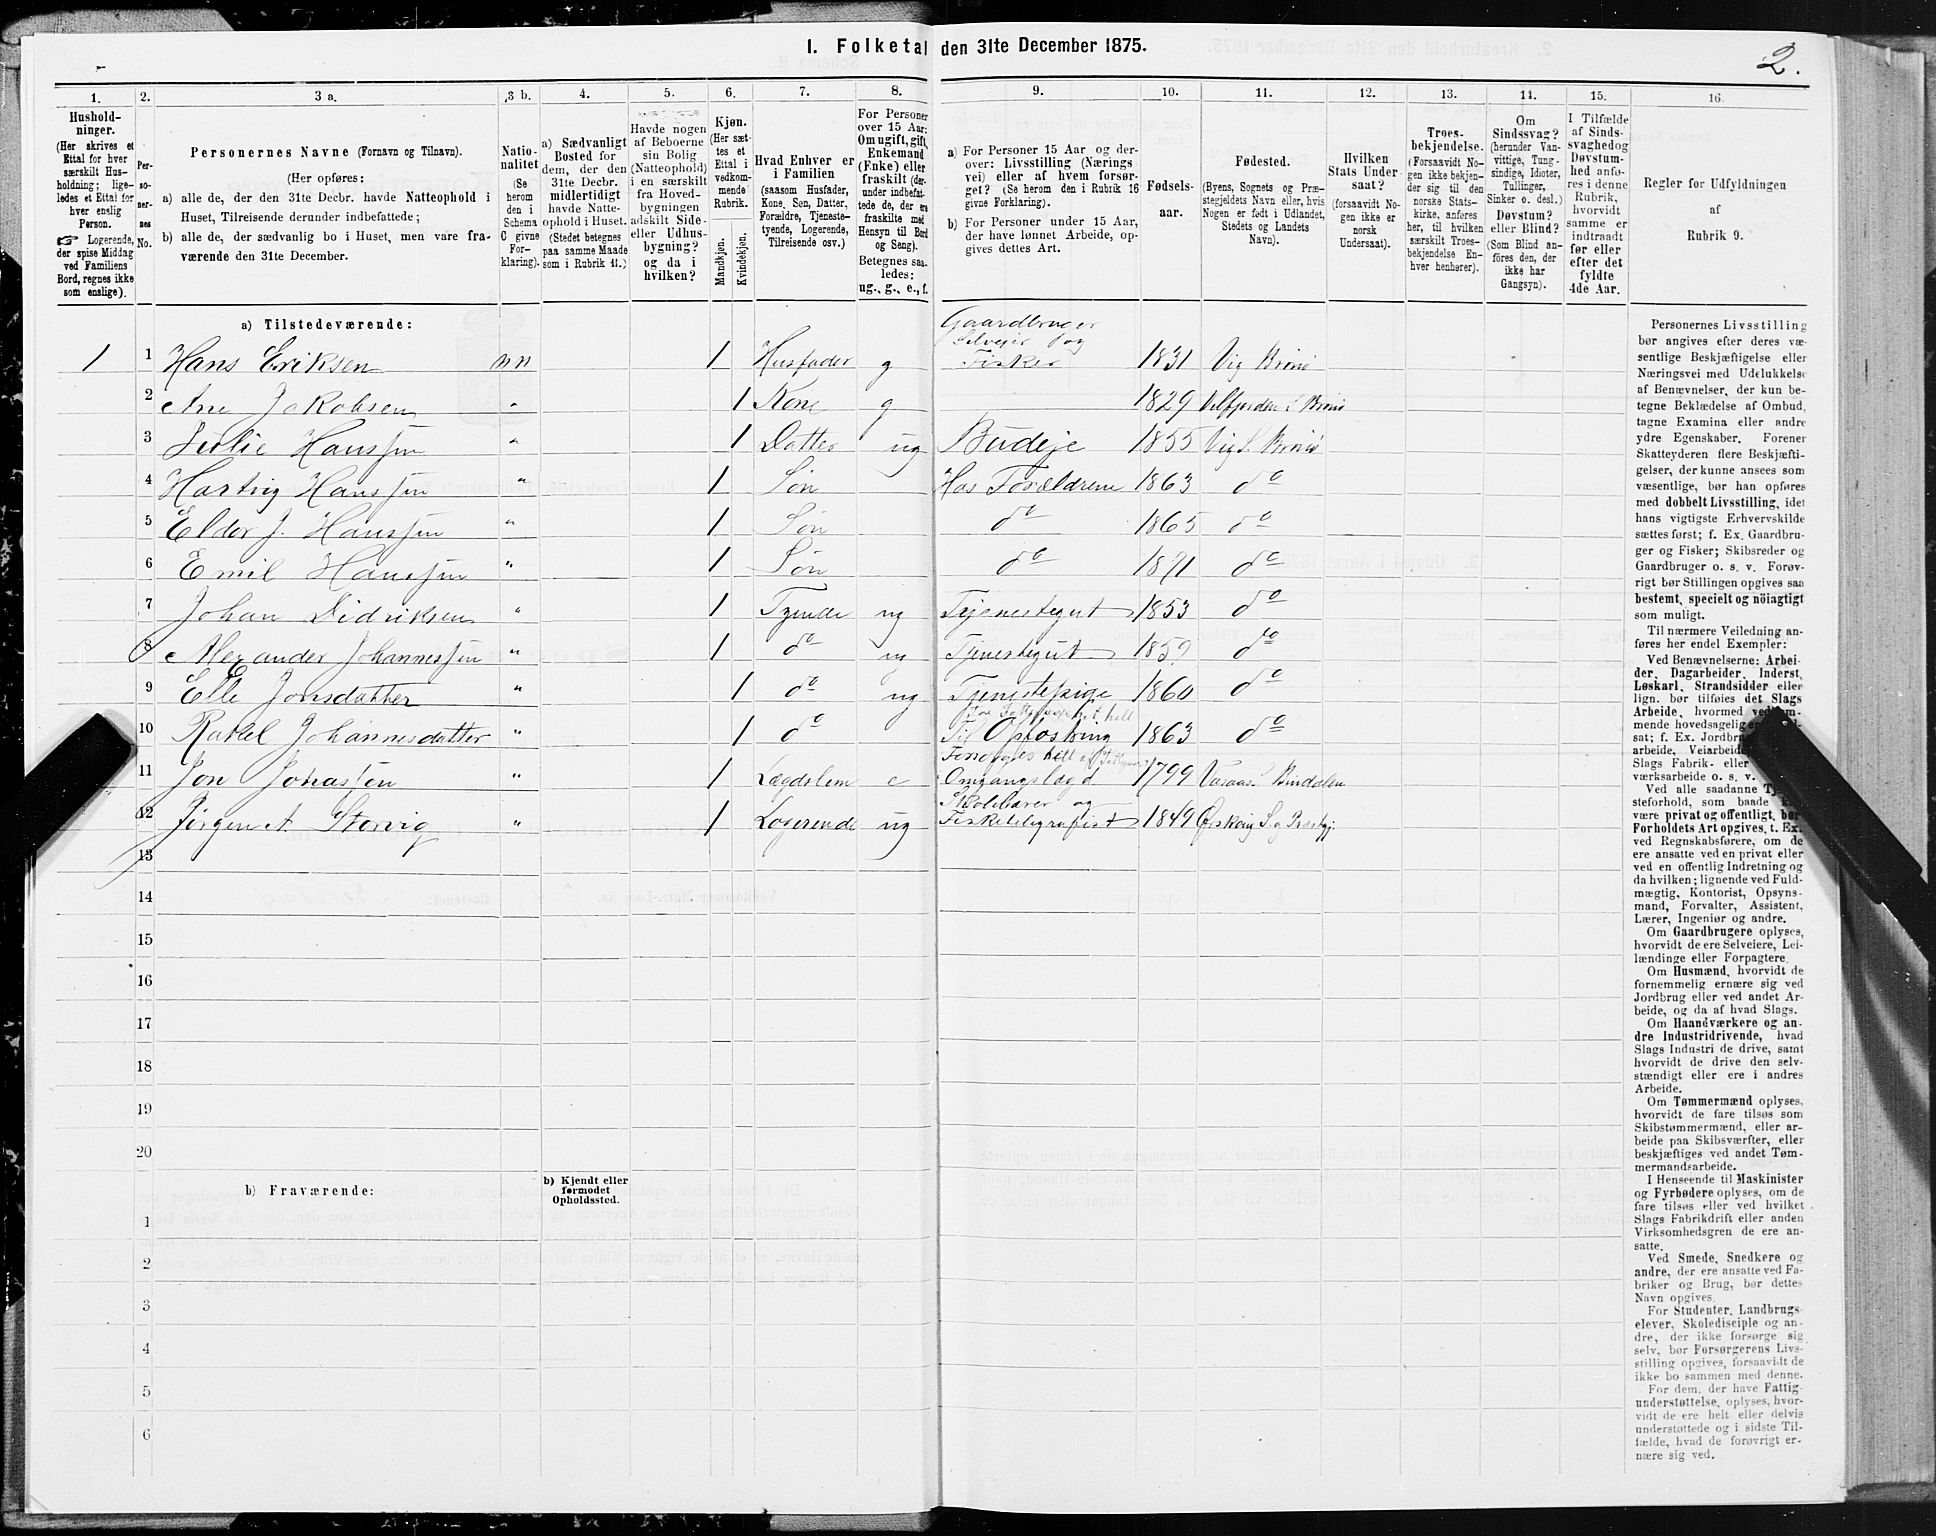 1. Folketal den 31te December 1875.
2.
1. 2. 3 a. 3 b. 4. 5. 6. 7. 8. 9. 10. 11. 12. 13. 14. 15. 16.
Hushold-
ninger.
(Her skrives et
Ettal for hver
særskilt Hus-
holdning; lige-
ledes et Ettal for
hver enslig
Person.
☞ Logerende,
der spise Middag
ved Familiens
Bord, regnes ikke
som enslige).
Per-
so-
ner-
nes
No.
Personernes Navne (Fornavn og Tilnavn).
(Her opføres:
a) alle de, der den 31te Decbr. havde Natteophold i
Huset, Tilreisende derunder indbefattede;
b) alle de, der sædvanlig bo i Huset, men vare fra-
værende den 31te December.
Natio-
nalitet
(Se
herom
den i
Schema
C givne
For-
klaring).
a) Sædvanligt
Bosted for
dem, der den
31te Decbr.
midlertidigt
havde Natte-
ophold i Huset.
(Stedet betegnes
paa samme Maade
som i Rubrik 11.)
Havde nogen
af Beboerne
sin Bolig
(Natteophold)
i en særskilt
fra Hoved-
bygningen
adskilt Side-
eller Udhus-
bygning?
og da i
hvilken?
Kjøn.
(Her sæt-
tes et
Ettal i
vedkom-
mende
Rubrik.
Mandkjøn.
Kvindekjøn.
Hvad Enhver er
i Familien
(saasom Husfader,
Kone, Søn, Datter,
Forældre, Tjeneste-
tyende, Logerende,
Tilreisende osv.)
For Personer
over 15 Aar:
Om ugift, gift,
Enkemand
(Enke) eller
fraskilt (der-
under indbefat-
tede de, der ere
fraskilte med
Hensyn til Bord
og Seng).
Betegnes saa-
ledes:
ug., g., e., f.
a) For Personer 15 Aar og der-
over: Livsstilling (Nærings
vei) eller af hvem forsør-
get? (Se herom den i Rubrik 16
givne Forklaring).
b) For Personer under 15 Aar,
der have lønnet Arbeide, op-
gives dettes Art.
Fødsels-
aar.
Fødested.
(Byens, Sognets og Præ-
stegjeldets Navn eller, hvis
Nogen er født i Udlandet,
Stedets og Landets
Navn).
Hvilken
Stats Under
saat?
(forsaavidt No-
gen ikke er
norsk
Undersaat).
Troes-
bekjendelse.
(Forsaavidt No-
gen ikke bekjen-
der sig til den
norske Stats-
kirke, anføres
her, til hvilken
særskilt Troes-
bekjendelse En-
hver henhører).
Om
Sindssvag?
(herunder Van-
vittige, Tung-
sindige, Idioter,
Tullinger,
Sinker o. desl.)
Døvstum?
eller Blind?
(Som Blind an-
føres den, der
ikke har
Gangsyn).
I Tilfælde
af Sinds-
svaghed og
Døvstum-
hed anfø-
res i denne
Rubrik,
hvorvidt
samme er
indtraadt
før eller
efter det
fyldte
4de Aar.
Regler for Udfyldningen
af
Rubrik 9.
a) Tilstedeværende:
1 1 Hans Eriksen nn 1 Husfader g Gaardbruger Selveier og Fisker 1831 Vig Brønø
2 Ane Jakobsen " 1 Kone g 1829 Velfjorden S Brønø
3 Julie Hanssen " 1 Datter ug Budeje 1855 Vig S. Brønø
4 Hartvig Hanssen " 1 Søn Hos Forældrene 1863 do
5 Eldor J. Hanssen " 1 Søn do 1865 do
6 Emil Hanssen " 1 Søn do 1871 do
7 Johan Didriksen " 1 Tyende ug Tjenestegut 1853 do
8 Alexander Johannessen " 1 do ug Tjenestegut 1859 do
9 Elle Jonsdatter " 1 do ug Tjenestepige 1860 do
10 Rakel Johannesdatter " 1 do Til Opfostring 1863 do
11 Jon Johassen " 1 Lægdslem e Omgangslægd 1799 Bindalen
12 Jørgen A Storvig " 1 Logerende ug Skolelærer og Fisketelegrafist 1849 Ørskoug S. og Præstgj.
13
14
15
16
17
18
19
20
b) Fraværende:
b) Kjendt eller
formodet
Opholdssted.
1
2
3
4
5
6
Personernes Livsstilling
bør angives efter deres væ-
sentlige Beskjæftigelse eller
Næringsvei med Udelukkelse
af Benævnelser, der kun be-
tegne Beklædelse af Ombud,
tagne Examina eller andre
ydre Egenskaber. Forener
Skatteyderen flere Beskjæfti-
gelser, der kunne ansees som
væsentlige, bør han opføres
med dobbelt Livsstilling, idet
hans vigtigste Erhvervskilde
sættes først; f. Ex. Gaardbru-
ger og Fisker; Skibsreder og
Gaardbruger o. s. v. Forøv-
rigt bør Stillingen opgives saa
bestemt, specielt og nöiagtigt
som muligt.
Til nærmere Veiledning an-
føres her endel Exempler:
Ved Benævnelserne: Arbei-
der, Dagarbeider, Inderst,
Løskarl, Strandsidder eller
lign. bør tilføies det Slags
Arbeide, hvormed
mende hovedsagelig
sat; f. Ex. Jordbr
arbeide, Veiarbeide
Slags Fabrik- eller
værksarbeide o. s. v.
Ved alle saadanne
steforhold, som baade
være privat og offentligt, bør
Forholdets Art opgives, t. Ex.
ved Regnskabsførere, om de
ere ansatte ved en privat eller
ved en offentlig Indretning og
da hvilken; lignende ved Fuld-
mægtig, Kontorist, Opsyns-
mand, Forvalter, Assistent,
Lærer, Ingeniør og andre.
Om Gaardbrugere oplyses,
hvorvidt de ere Selveiere, Lei-
lændinge eller Forpagtere.
Om Husmænd, hvorvidt de
fornemmelig ernære sig ved
Jordbrug eller ved andet Ar-
beide, og da af hvad Slags.
Om Haandværkere og an-
dre Industridrivende, hvad
Slags Industri de drive, samt
hvorvidt de drive den selv-
stændigt eller ere i andres
Arbeide.
Om Tømmermænd oplyses,
hvorvidt de fare tilsøs som
Skibstømmermænd, eller ar-
beide paa Skibsværfter, eller
beskjæftiges ved andet Tøm-
mermandsarbeide.
I Henseende til Maskinister
og Fyrbødere oplyses, om de
fare tilsøs eller ved hvilket
Slags Fabrikdrift eller anden
Virksomhedsgren de ere an-
satte.
Ved Smede, Snedkere og
andre, der ere ansatte ved Fa-
briker og Brug, bør dettes
Navn opgives.
For Studenter, Landbrugs-
elever, Skoledisciple og an-
dre, der ikke forsørge sig
selv, bør Forsørgerens Livs-
stilling opgives, forsaavidt de
ikke bo sammen med denne.
For dem, der have Fattig-
understøttelse, oplyses, hvor-
vidt de ere helt eller delvis
understøttede og i sidste Til-
fælde, hvad de forøvrigt er-
nære sig ved.